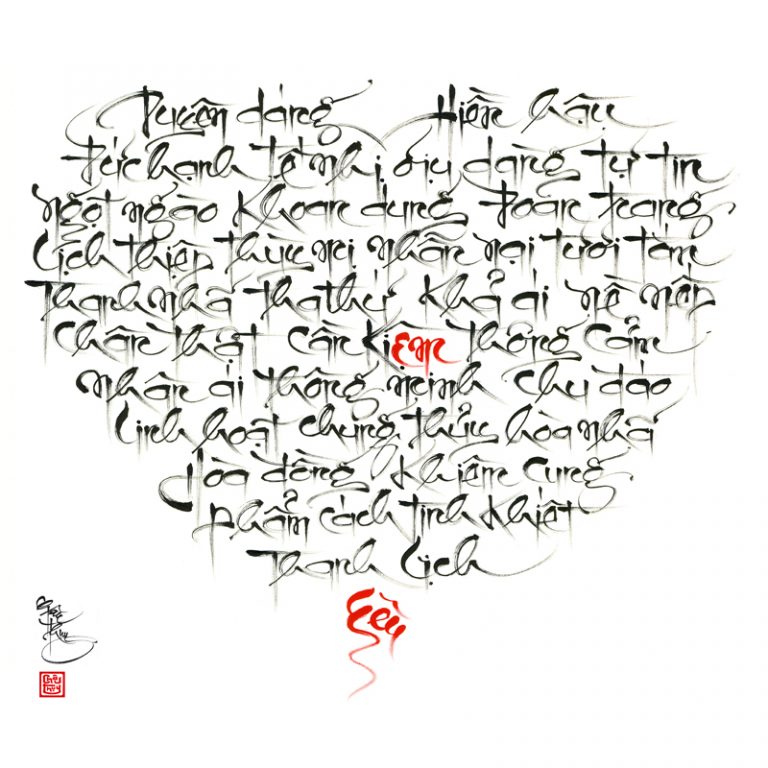 Duyên dáng Hiền hậu
Đức hạnh tế nhị dịu dàng tự tin
ngọt ngào khoan dung Đoan trang
Lịch thiệp thùy mị nhẫn nại tươi tắm
Thanh nhã tha thứ khả ái nề nếp
chân thật cần KịEm thông cảm
nhân ái thông minh chu đáo
Linh hoạt chung thủy hòa nhã
Hòa đồng khiêm cung
phẩm cách tinh khiết
Thanh Lịch